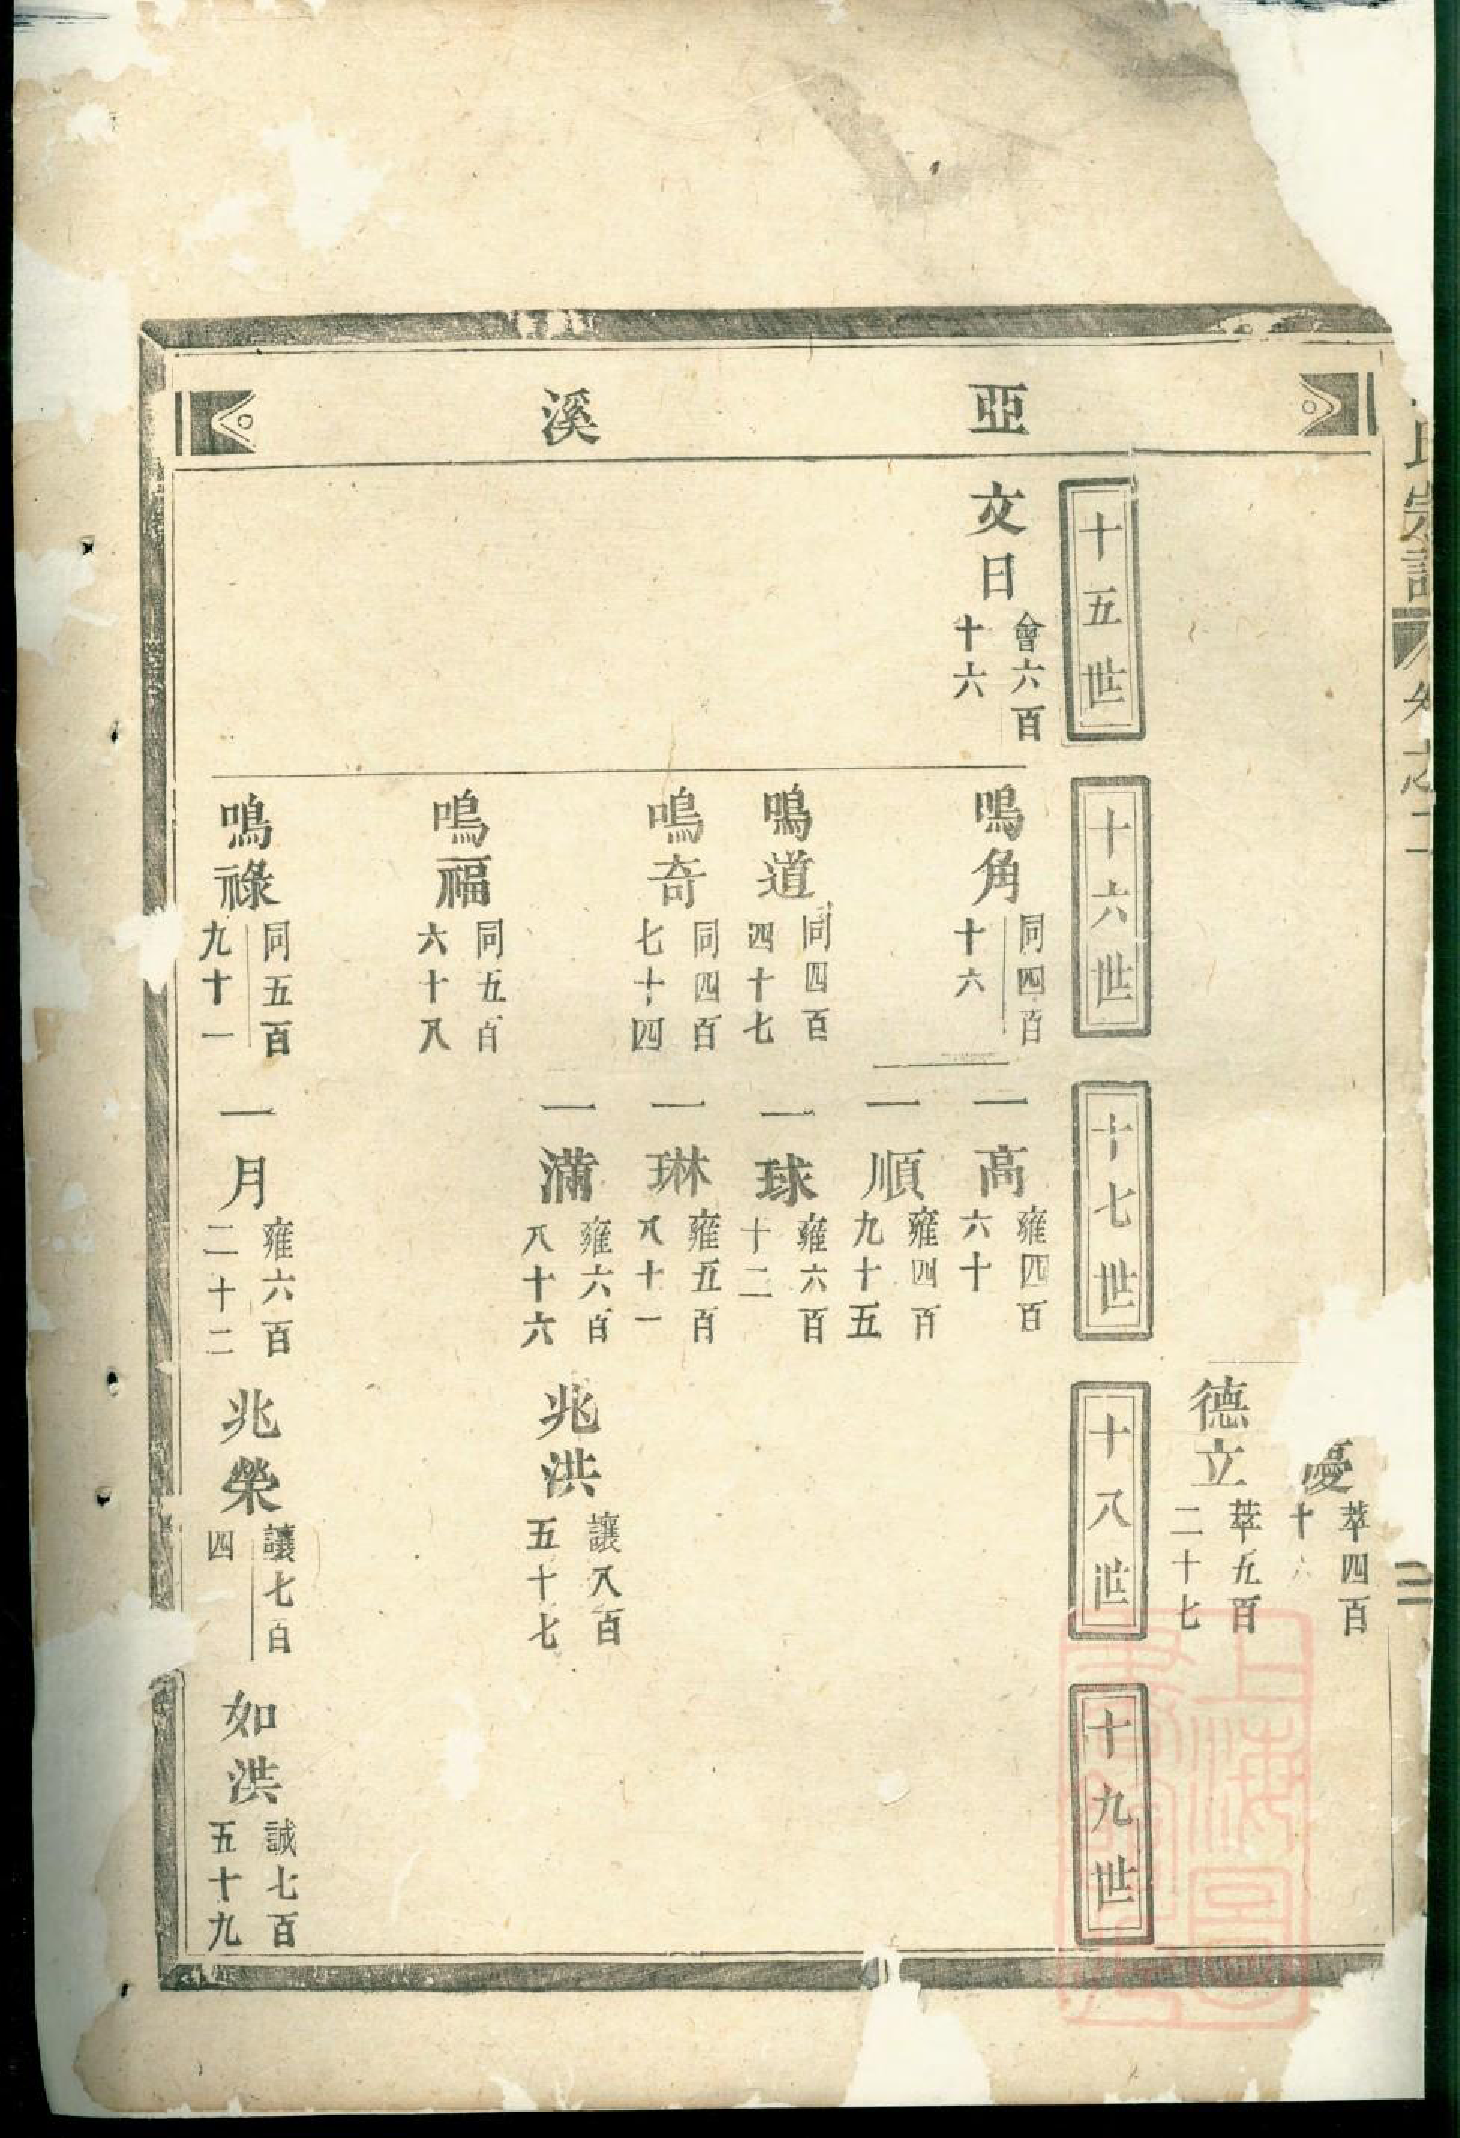 亞溪
氏宗譜
卷之二
二
憂 萃四百十六
德立 萃五百二十七
十五世
十六世
十七世
十八世
十九世
文日 會六百十六
鳴角 同四百十六
一高 雍四百六十
一順 雍四百九十五
鳴道 同四百四十七
一球 雍六百十二
鳴奇 同四百七十四
一琳 雍五百八十一
一滿 雍六百八十六
兆洪 讓八百五十七
鳴福 同五百六十八
鳴祿 同五百九十一
一月 雍六百二十二
兆榮 讓七百四
如洪 誠七百五十九
上海圖書館藏